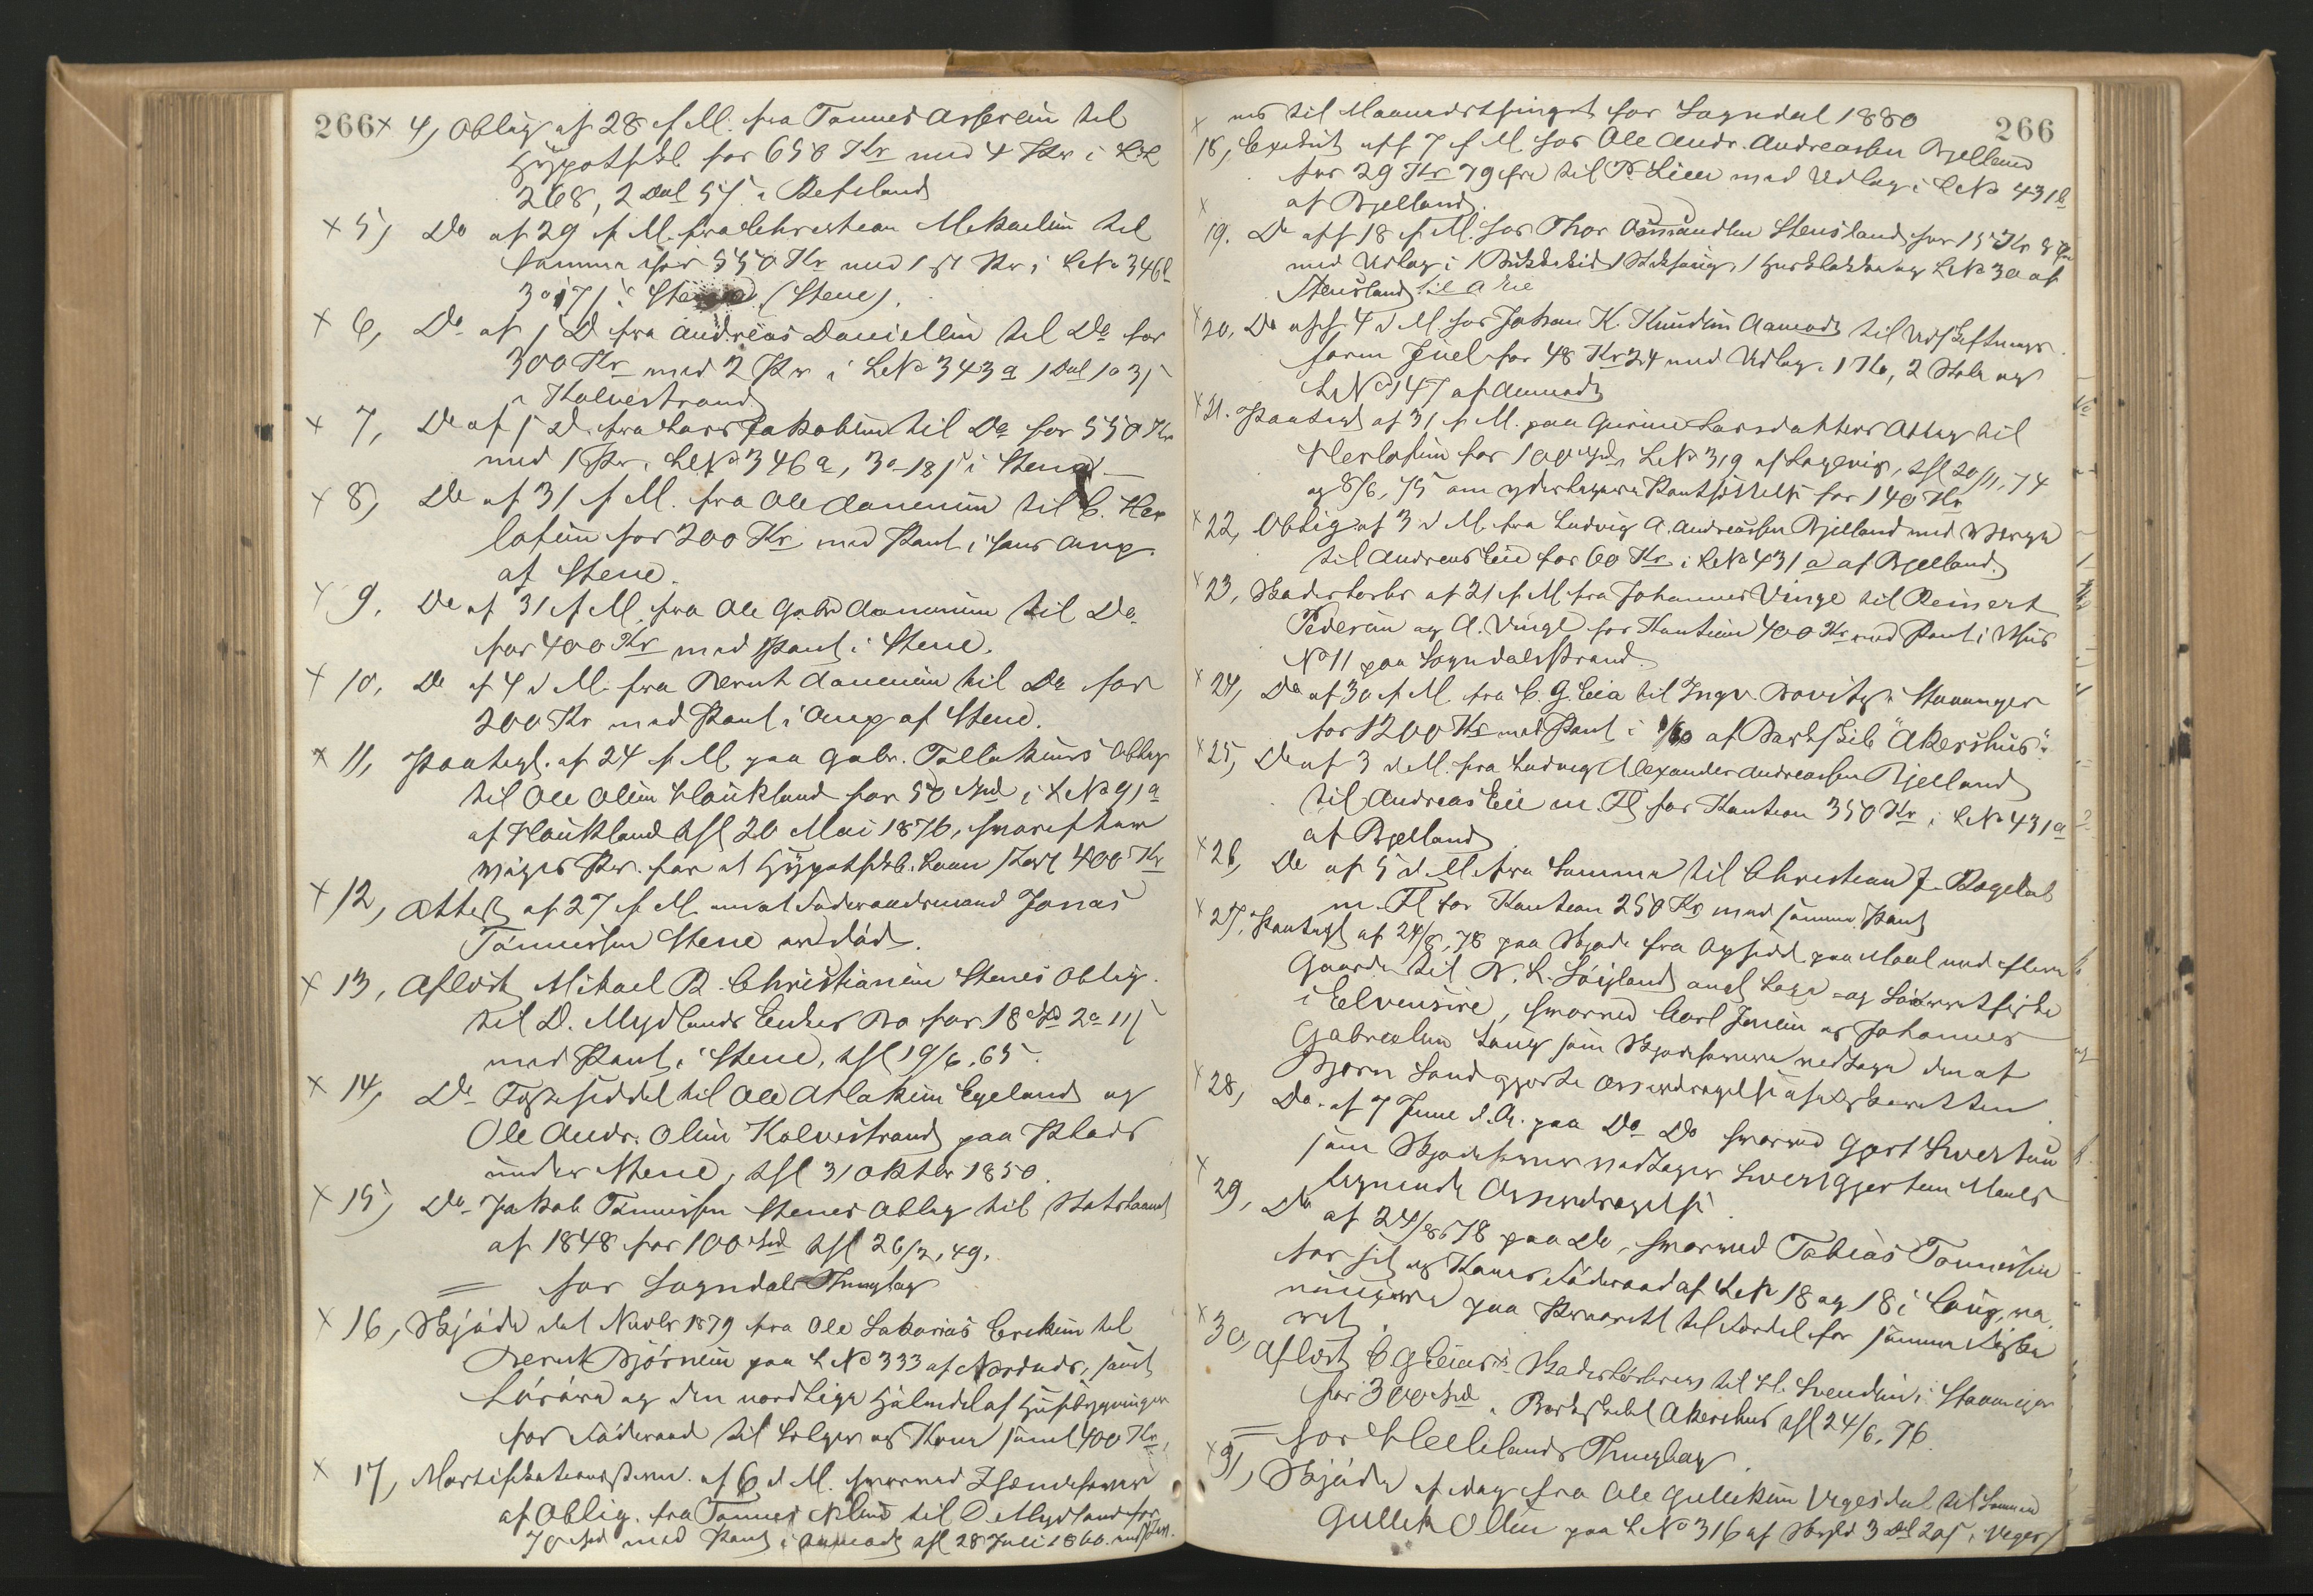 266 × 4, Oblig af 28 f. M. fra Tønnes Assersen til
Hypothbk for 650 Kr med 4 Pr i LN
268, 2 Dal 5 ſ i Refsland
× 5, Do af 29 f. M. fra Christian Mikaelsen til
samme for 550 Kr med 1st Pr i LNo 346b
Stene (Stene).
× 6, Do af 1 D. fra Andreas Daniellsen til Do for
300 Kr med 2 Pr i LNo 343a 1 Dal 1o 3ſ
i Kalvestrand
× 7, Do af 1 D. fra Lars Jakobsen til Do for 550 Kr
med 1 Pr. i LNo 346a, 3o-18ſ i Stene
× 8, Do af 31 f. M. fra Ole Aanensen til C. Her
lofsen for 200 Kr med Pant i hans Anp.
af Stene.
× 9. Do af 31 f. M. fra Ole Gabr Aanensen til Do
for 400 Kr med Pant i Stene.
× 10. Do af 4 d. M. fra Bernt Aanensen til Do for
200 Kr med Pant i Anp af Stene.
× 11, Paategn. af 24 f. M. paa Gabr. Tollaksens Oblig
til Ole Olsen Haukland for 50 Spd i LNo 91a
af Haukland thl 20 Mai 1876, hvorefter
viger Pr. for et Hypothbk. Laan stort 400 Kr
× 12, Attest af 27 f. M. om at Føderaadsmand Jonas
Tønnesen Stene er død.
× 13, Aflæst Mikael B. Christiansen Stenes Oblig.
til D. Mydlands Enkes Bo for 18 Spd 2o 11ſ
med Pant i Stene, thl 19/6. 65.
× 14, Do Festeseddel til Ole Atlaksen Egeland og
Ole Andr. Olsen Kalvestrand paa Plads
under Stene, thl 31 Oktbr 1850.
× 15, Do Jakob Tønnesen Stenes Oblig til Statslaanet
af 1848 for 100 Spd thl 26/2, 49.
= for Sogndals Thinglag
× 16, Skjøde dat Novbr 1879 fra Ole Sakarias Eriksen til
Bernt Bjørnsen paa LNo 333 af samt
og den nordlige Halvdel af Husbygningen
for Føderaad til Sælger og Kone samt 400 Kr
× 17, Mortifikationsdom af 6 d. M. hvorved Ihændehaver
af Oblig. fra Tønnes til D. Mydland for
70 Spd med Pant i Aamodt thl 28 Juli 1860.
266
× til Maanedsthinget for Sogndal 1880
18, Exedut. aff 7 f. M. hos Ole Andr. Andreassen Bjelland
for 29 Kr 79 Øre til P. Lien med Udlæg i LNo 431b
× af Bjelland.
19. Do aff 18 f. M. hos Thor Osmundsen Stensland for
med Udlæg i og LNo 30 af
Stensland
× 20, Do aff 4 d. M. hos Johan K. Knudsen Aamodt til Udskiftnings
form Juel for 48 Kr 24 med Udlæg i 1 Ko, 2 Stole og
LNo 147 af Aamodt
× 21. Paategn af 31 f. M. paa Gurine Larsdatters Oblig til
Herlofsen for 100 Spd, LNo 319 af Løgevig, thl 20/11, 74
og 8/6, 75 om yderligere Pantsættelse for 140 Kr
× 22, Oblig af 3 d. M. fra Ludvig A. Andreassen Bjelland med Værge
til Andreas Eie for 60 Kr i LNo 431a af Bjelland
× 23, Skadesløsbr af 21 f. M. fra Johannes Vinge til Reinert
Pedersen og A. Vinge for Kaution 400 Kr med Pant i Hus
No 11 paa Sogndalsstrand.
× 24, Do af 30 f. M. fra C. G. Eia til Ingv. i Stavanger
for 1200 Kr med Pant i af Barkskib "Akershus".
× 25, Do af 3 d. M. fra Ludvig Alexander Andreassen Bjelland
til Andreas Eie m. Fl for Kaution 350 Kr, i LNo 431a
af Bjelland
× 26, Do af 5 d. M. fra samme til Christian J.
m. Fl for Kaution 250 Kr med samme Pant
× 27, Paategn af 24/8, 78 paa Skjøde fra Opsidd. paa med flere
Gaarde til N. L. Løigland angl Laxe- og Søørretfiske
i Eelvensire, hvorved Carl Jensen og Johannes
Gabrielsen Laug som Skjødehavere vedtage den af
Bjørn Sand gjorte
× 28, Do. af 7 Juni d. A. paa Do Do hvorved Gjert Sivertsen
som Skjødehaver vedtager Sivert Gjertsen
lignende Overdragelse
× 29, Do af 24/8 78 paa Do, hvorved Tobias Tønnesen
for sit og Kones Føderaad af LNo 18 og 18 i Laug,
paa Prioritet til Fordel for samme Fiske
ret.
× 30, Aflæst C G Eias Skadesløsbrev til H. Svendsen i Stavanger
for 300 Spd i Barkskibet Akershus thl 24/6, 76.
= for Hellelands Thinglag
× 31, Skjøde af idag fra Ole Gulliksen Vegesdal til Sønnen
Gullik Olsen paa LNo 316 af Skyld 3 Dal